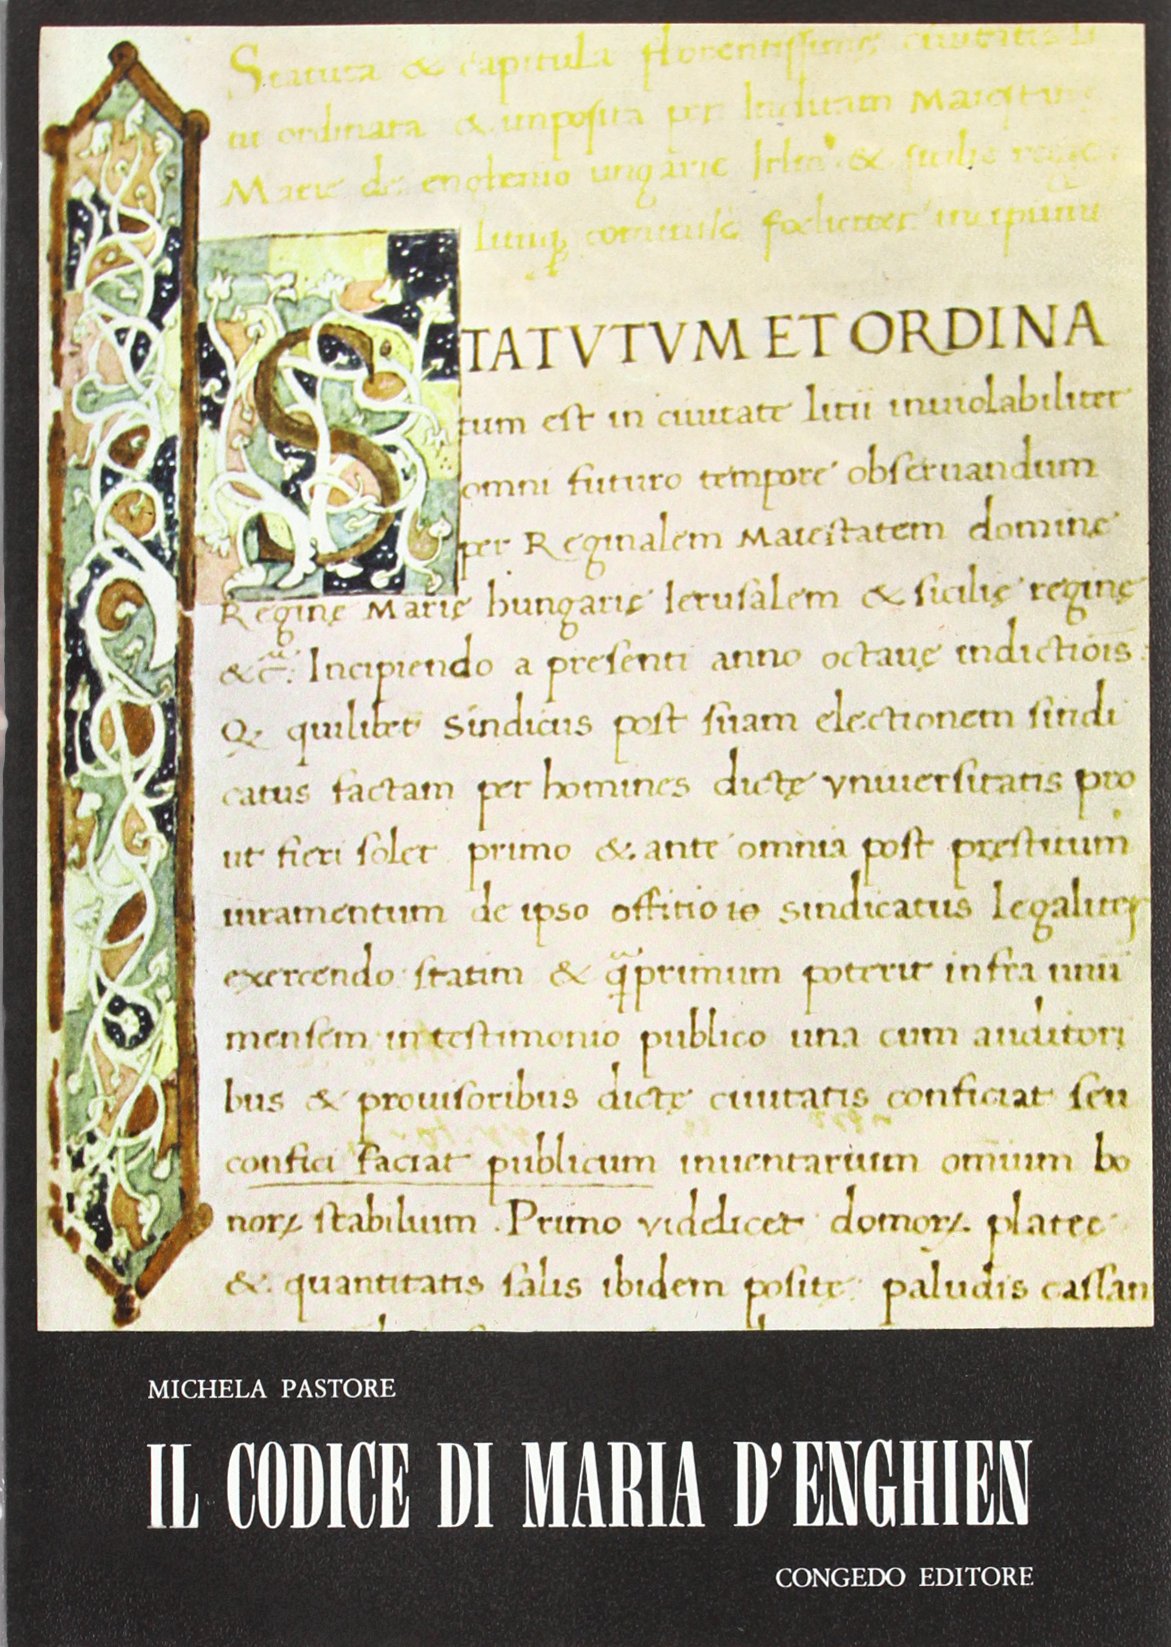 Statuta & capitula florentissime ciuitatis Li
tii ordinata & imposita per Inclitam Maiestatem
Marie de engenio ungarie Irlm & sicilie regine
Litiiq comitisse foeliciter incipiunt
STATVTVM ET ORDINA
tum est in ciuitate litii inuiolabiliter
omni futuro tempore obseruandum
per Reginalem Maiestatem domine
Reginę Marię hungarię Ierusalem & sicilię reginę
&c. Incipiendo a presenti anno octauę indictiois
Q quilibet Sindicus post suam electionem sindi
catus factam per homines dictę vniuersitatis pro
ut fieri solet primo & ante omnia post prestitum
iuramentum de ipso offitio io sindicatus legaliter
exercendo statim & qprimum poterit infra unu
mensem in testimonio publico una cum auditori
bus & prouisoribus dictę ciuitatis conficiat seu
confici faciat publicum inuentarium omium bo
noꝝ stabilium . Primo videlicet domoꝝ plateę
& quantitatis salis ibidem positę paludis cassan
MICHELA PASTORE
IL CODICE DI MARIA D'ENGHIEN
CONGEDO EDITORE